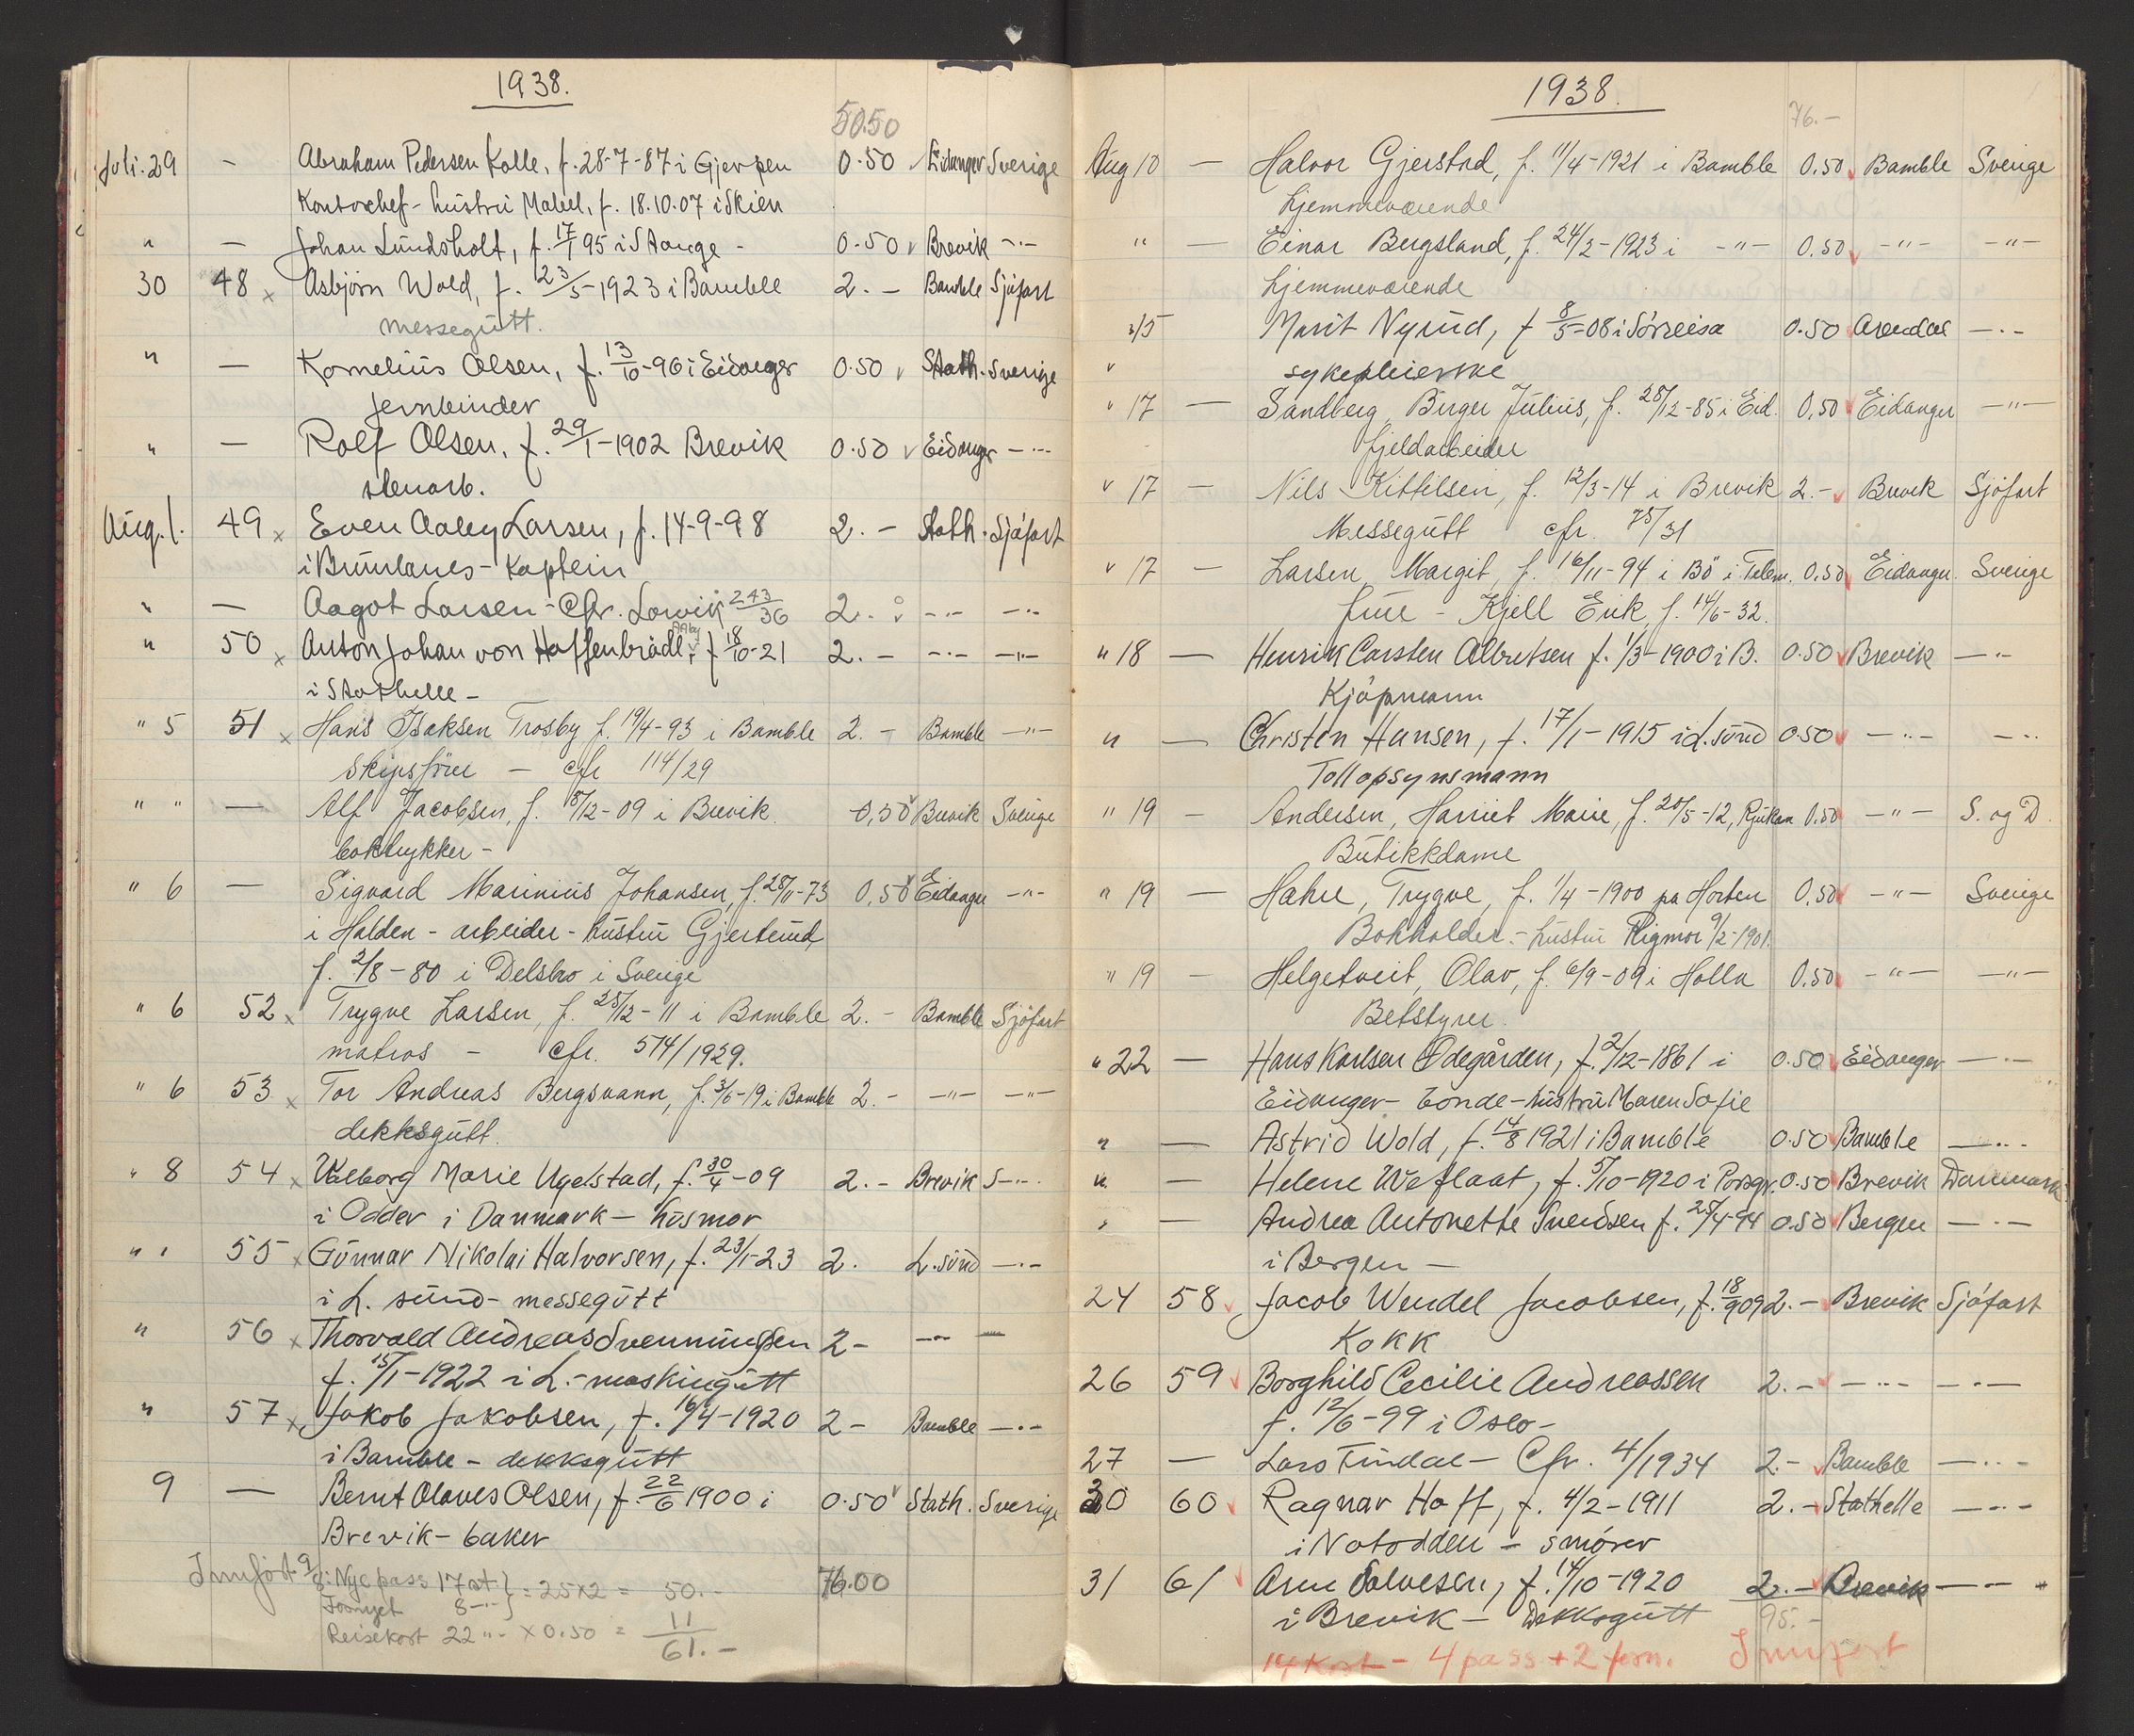 1938.
50.50
Juli.29 - Abraham Pedersen Kolle, f. 28-7-87 i Gjerpen 0.50 Eidanger Sverige
Kontorchef - hustru Mabel, f. 18.10.07 i Skien
" - Johan Lundsholt, f. 17/1 95 i Stange - 0.50 v Brevik -"-
30 48 x Asbjörn Wold, f. 23/5-1923 i Bamble 2.- Bamble Sjöfart
messegutt.
" - Kornelius Olsen, f. 13/10-96 i Eidanger 0.50 v Stath. Sverige
jernbinder
" - Rolf Olsen, f. 29/1-1902 Brevik 0.50 v Eidanger -"-
stenarb.
Aug.1. 49 x Even Aaby Larsen, f. 14-9-98 2.- Stath. Sjöfart
i Brunlanes - Kaptein
" - Aagot Larsen - Cfr. Larvik 243/36 2.- v -"- -"-
" 50 x Anton Johan von Haffenbrädl, f 18/10-21 2.- -"- -"-
Aaby
i Stathelle -
" 5 51 x Hans Isaksen Trosby f. 19/4-93 i Bamble 2.- Bamble -"-
Skipsförer - cfr 114/29
" " - Alf Jacobsen, f. 8/12-09 i Brevik. 0,50 v Brevik Sverige
boktrykker -
" 6 - Sigvard Marinius Johansen, f. 28/11-73 0,50 v Eidanger -"-
i Halden - arbeider - hustru Gjertrud,
f. 2/8-80 i Delsbo i Sverige
" 6 52 x Trygve Larsen, f. 25/12-11 i Bamble 2.- Bamble Sjöfart
matros - cfr. 574/1929.
" 6 53 x Tor Andreas Bergsvann, f. 3/6-19 i Bamble 2.- -"- -"-
dekksgutt.
" 8 54 x Valborg Marie Ugelstad, f. 30/4-09 2.- Brevik S-"-
i Odder i Danmark - husmor
" " 55 x Gunnar Nikolai Halvorsen, f. 23/1-23 2. L.sund -"-
i L. sund - messegutt
" 56 x Thorvald Andreas Svenningsen 2- -"- -"-
f. 15/1-1922 i L. - maskingutt
" 57 x Jakob Jakobsen, f. 16/4-1920 2- Bamble -"-
i Bamble - dekksgutt
9 - Bernt Olaves Olsen, f. 22/6 1900 i 0.50 v Stath. Sverige
Brevik - baker
Innfört 9/8: Nye pass 17 st } = 25x2 = 50.- 76.00
Fornyet 8 -"-
Reisekort 22 "- x 0.50 = 11
61.-
1938.
76.-
Aug 10 - Halvor Gjerstad, f. 11/4-1921 i Bamble 0.50 Bamble Sverige
Hjemmeværende
" - Einar Bergsland, f. 24/2-1923 i -"- 0.50 -"- -"-
Hjemmeværende
"15 Marit Nyrud, f 8/5-08 i Sörreisa 0.50 Arendal -"-
" sykepleierske
" 17 - Sandberg, Birger Julius, f. 28/12-85 i Eid. 0,50 Eidanger -"-
fjeldarbeider
" 17 - Nils Kittilsen, f. 12/3-14 i Brevik 2.- Brevik Sjöfart
Messegutt cfr. 75/31
" 17 - Larsen, Margit, f. 16/11-94 i Bö i Telem. 0.50 Eidanger. Sverige
frue - Kjell Erik, f. 14/6-32.
" 18 - Henrik Carsten Albretsen f. 1/3-1900 i B. 0.50 Brevik -"-
Kjöpmann
" - Christen Hansen, f. 17/1-1915 i L.sund 0.50 -"- -"-
Tollopsynsmann
" 19 - Andersen, Harriet Marie, f. 20/5-12, Rjukan 0.50 -"- S. og D.
Butikkdame
" 19 - Hahre, Trygve, f. 1/4-1900 på Horten 0,50 -"- Sverige
Bokholder. - hustru Rigmor 9/2-1901.
" 19 - Helgetveit, Olav, f. 6/9-09 i Holla 0.50 -"- -"-
Betstyrer.
" 22 - Hans Karlsen Ödegården, f. 2/12-1861 i 0.50 Eidanger -"-
Eidanger - bonde - hustru Maren Sofie
" - Astrid Wold, f. 14/8 1921 i Bamble 0.50 Bamble -"-
" - Helene Weflaat, f. 5/10-1920 i Porsgr. 0.50 Brevik Danmark
" - Andrea Antonette Svendsen f. 25/4-94 0.50 Bergen -"-
i Bergen -
24 58 Jacob Wendel Jacobsen, f. 18/9 09 2.- Brevik Sjöfart
Kokk
26 59 Borghild Cecilie Andreassen 2.- -"- -"-
f. 12/6-99 i Oslo -
27 - Lars Findal - Cfr. 4/1934 2.- Bamble -"-
30 60 Ragnar Hoff, f. 4/2-1911 2.- Stathelle -"-
i Notodden - smörer
31 61 Arne Salvesen, f. 14/10-1920 2.- Brevik -"-
i Brevik - Dekksgutt 95.-
14 Kort - 4 pass + 2 forn. Innfört